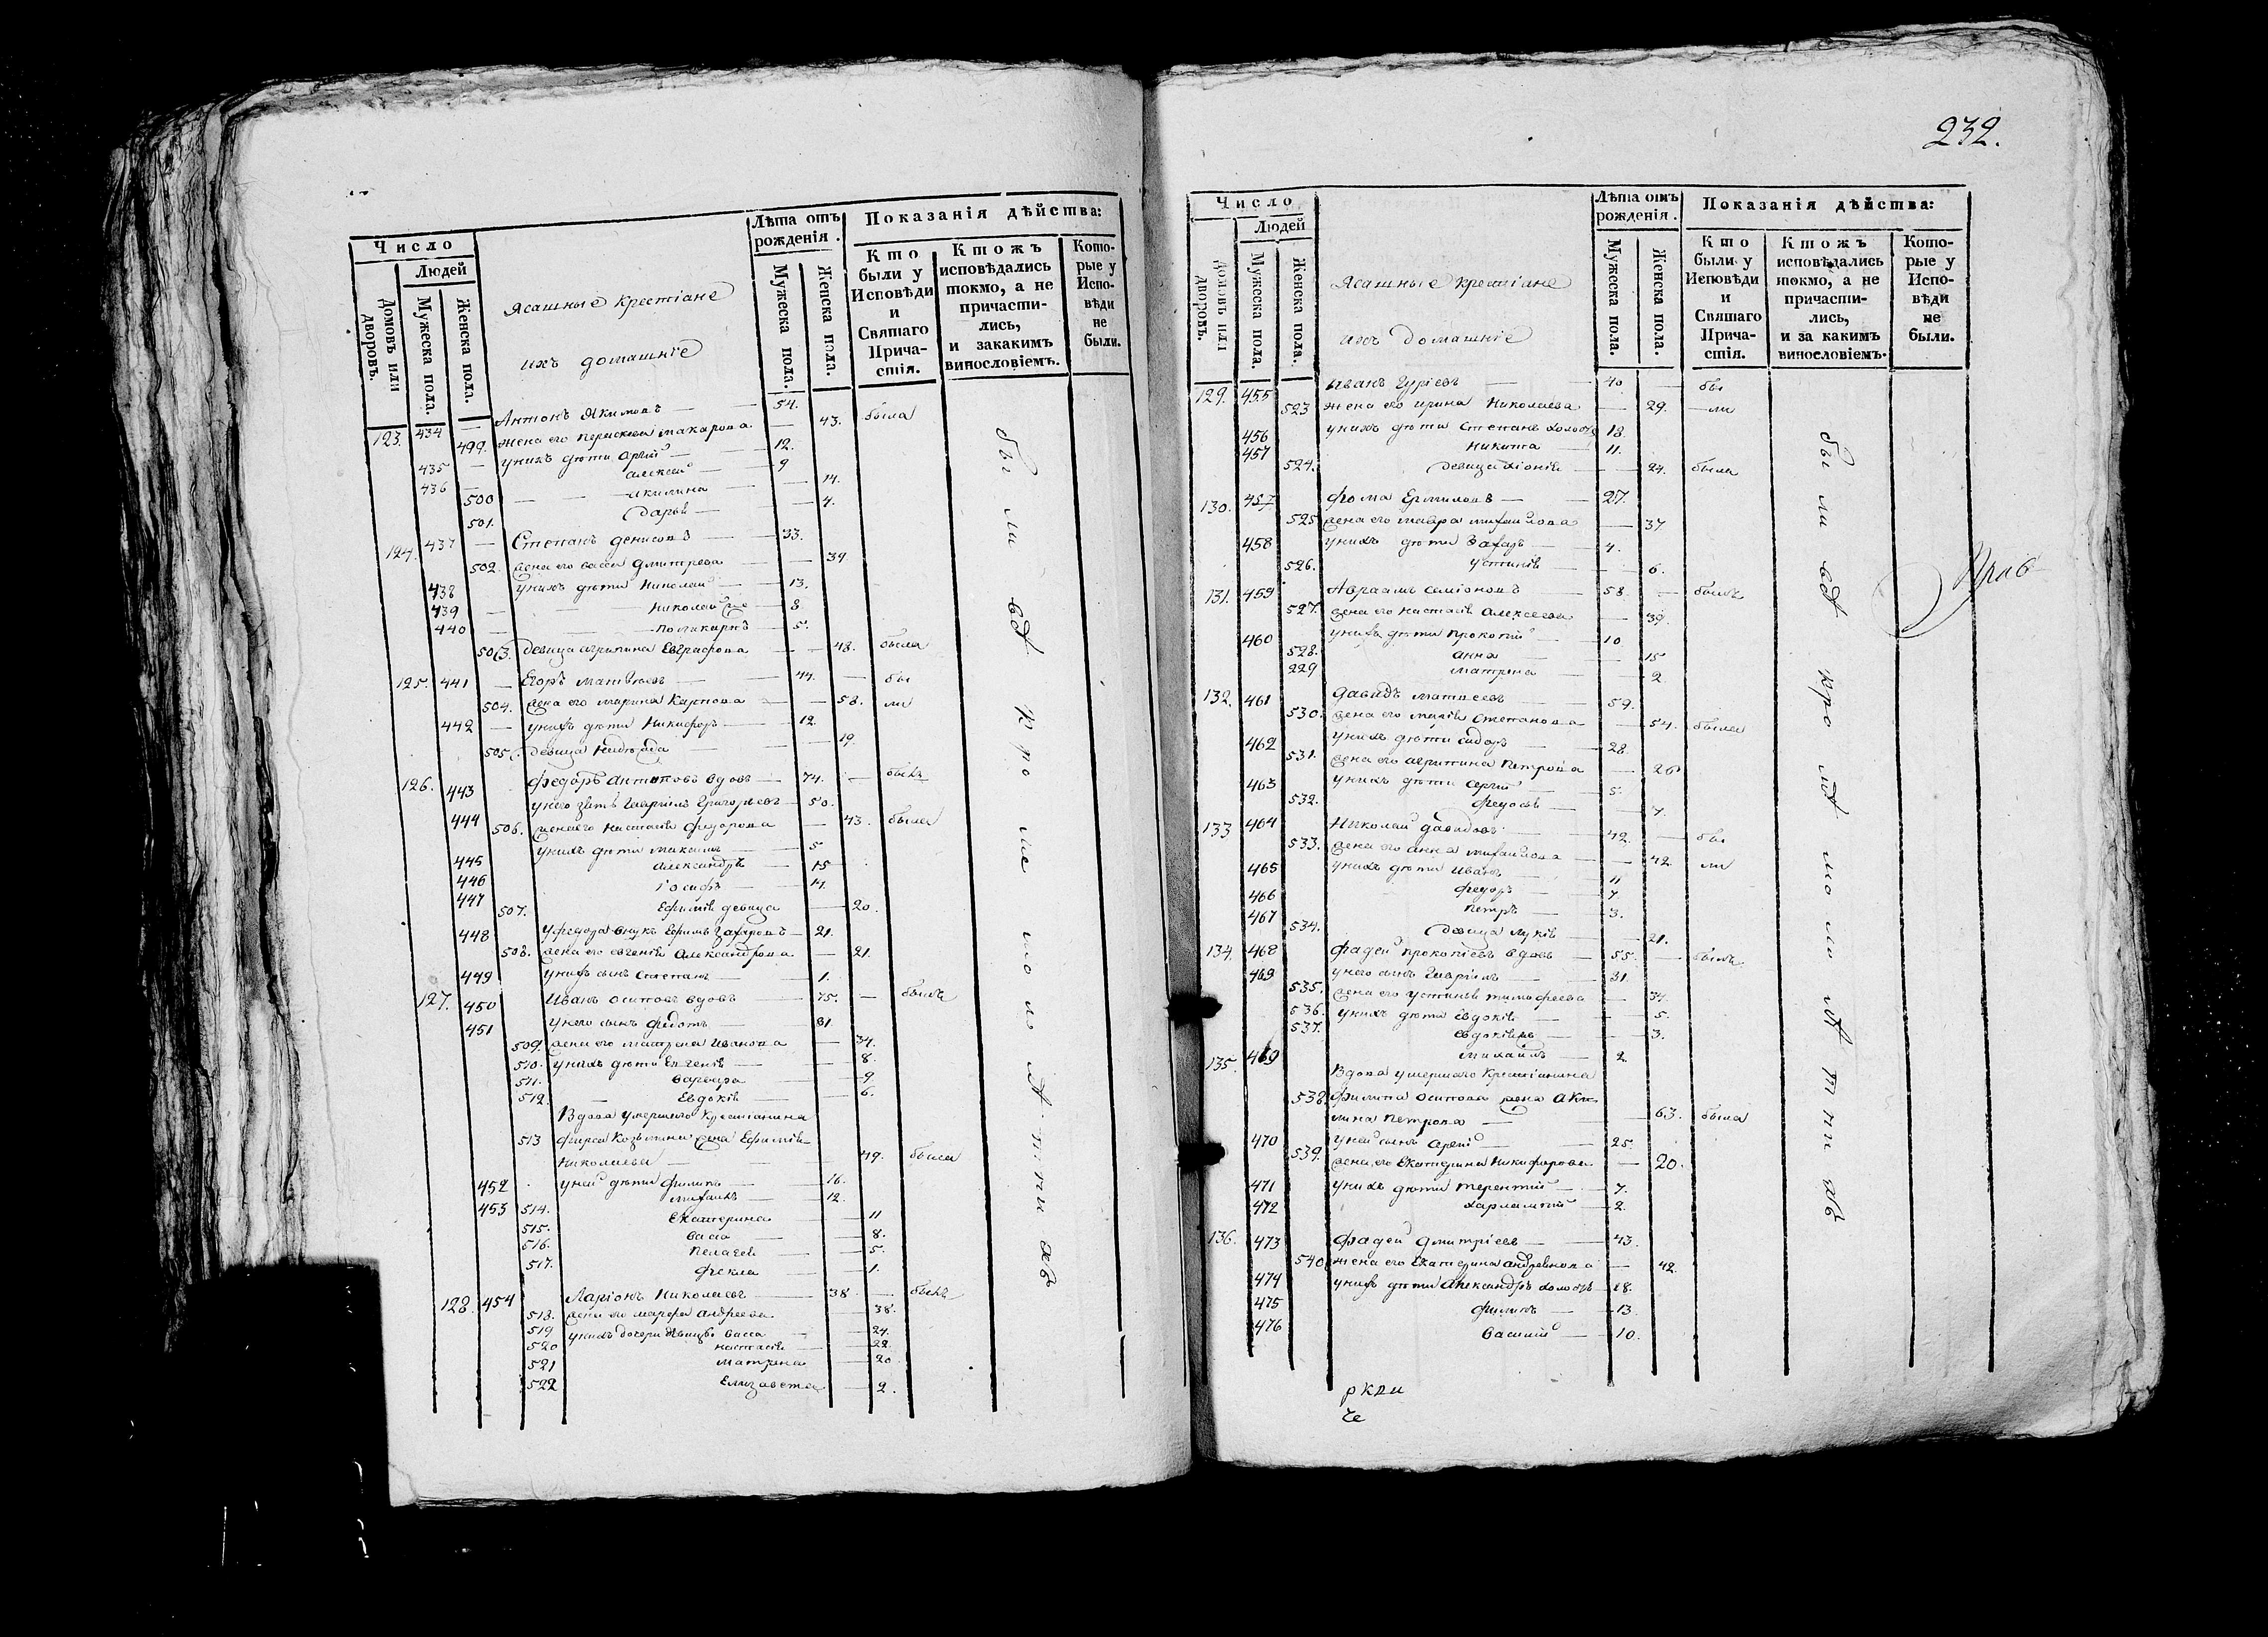 Число
Людей
Домовъ или дворовъ.
Мужеска пола.
Женска пола.
Ясашные крестіане
ихъ домашніе
Лѣта отъ рожденія.
Мужеска пола.
Женска пола.
Показанія дѣйства:
Кто были у Исповѣди и Святаго Причастія.
Ктожъ исповѣдались токмо, а не причастились, и закакимъ винословіемъ.
Которые у Исповѣди не были.
123. 434 — Антонъ Якимовъ — 54.
499. жена его Пераскева Макарова — 43. была
435 — унихъ дѣти Сергій — 12.
436 — Алексей — 9
500 — Акилина — 14.
501. Дарья — 4.
124. 437 — Степанъ Денисовъ — 33.
502. жена его Васса Дмитрева — 34
438 унихъ дѣти Николай — 13.
439 — Николай — 8
440 — Поликарпъ — 5.
503. девица Агрипина Евграфова — 48. была
125. 441 — Егоръ Матвѣевъ — 44. — бы
504. жена его Марина Карпова — 58. ли
442 — унихъ дѣти Никифоръ — 12.
505. девица Надежда — 19.
126. 443 Федоръ Антиповъ вдовъ — 74. — былъ
444 унего зять Гавриилъ Григорьевъ — 50.
506. женаего Настасія Федорова — 43. была
445 унихъ дѣти Максимъ — 5
446 Александръ — 15
447 Іосифъ — 14.
507. Ефимія девица — 20.
448 уфедора внукъ Ефимъ Захаровъ — 21.
508. жена его Евгенія Александрова — 21.
449 унихъ сынъ Степанъ — 1.
127. 450 Иванъ Осиповъ вдовъ — 75. — былъ
451 унего сынъ Федотъ — 31.
509. жена его Матрена Иванова — 34.
510. унихъ дѣти Евгенія — 8.
511. Варвара — 9
512. — Евдокія — 6.
Вдова умершаго крестіанина
513 Фирса Козьмина жена Ефимія
Николаева — 49. была
452 уней дѣти Филипъ — 16.
453 Михаилъ — 12.
514. Екатерина — 11
515. Васса — 8.
516. Пелагея — 5.
517. Фекла — 1.
128. 454 Ларіонъ Николаевъ — 38 — былъ
518. жена его Марфа Андреева — 38.
519 унихъ дочери девицы Васса — 24.
520 Настасія — 22
521 Матрена — 20
522 Елизавета — 2.
232.
Число
Людей
Домовъ или дворовъ.
Мужеска пола.
Женска пола.
Ясашные крестіане
ихъ домашніе
Лѣта отъ рожденія.
Мужеска пола.
Женска пола.
Показанія дѣйства:
Кто были у Исповѣди и Святаго Причастія.
Ктожъ исповѣдались токмо, а не причастились, и за какимъ винословіемъ.
Которые у Исповѣди не были.
129. 455 Иванъ Гуріевъ — 40 — бы
523 жена его Ирина Николаева — 29. — ли
456 унихъ дѣти Степанъ холостъ 18
457 Никита — 11.
524. Девица Хіонія — 24. была
130. 457 Фома Ермиловъ — 27.
525 жена его Мавра Михайлова — 37
458 унихъ дѣти Захаръ — 4.
526. Устинія — 6.
131. 459 Авраамъ Семіоновъ — 58 — былъ
527. жена его Настасія Алексеева — 39.
460 унихъ дѣти Прокопій — 10
528. Анна — 15
229 Матрена — 2
132. 461 Давидъ Матвеевъ — 59.
530. жена его Марія Степанова — 54. была
462 унихъ дѣти Сидоръ — 28.
531. жена его Агрипина Петрова — 26
463 унихъ дѣти Сергій — 5.
532. Федосья — 7.
133 464 Николай Давидовъ — 42. — бы
533. жена его Анна Михайлова — 42. ли
465 унихъ дѣти Иванъ — 11
466 Федоръ — 7.
467 Петръ — 3.
534. Девица Лукія — 21.
134. 468 Фадей Прокопіевъ вдовъ — 55. — былъ
469 унего сынъ Гавріилъ — 31.
535. жена его Устинья Тимофеева — 34.
536. унихъ дѣти Евдокія — 5.
537. Евдокія — 3.
469 Михайлъ — 2
135. Вдова умершаго крестіанина
538. Филипа Осипова жена Аки-
лина Петрова — 63. была
470 уней сынъ Сергій — 25.
539. жена его Екатерина Никифорова — 20.
471 унихъ дѣти Терентій — 7.
472 Харлампій — 2.
136. 473 Фадей Дмитріевъ — 43.
540 жена его Екатерина Андреянова — 42.
474 унихъ дѣти Александръ холостъ — 18.
475 Филипъ — 13.
476 Василій — 10.